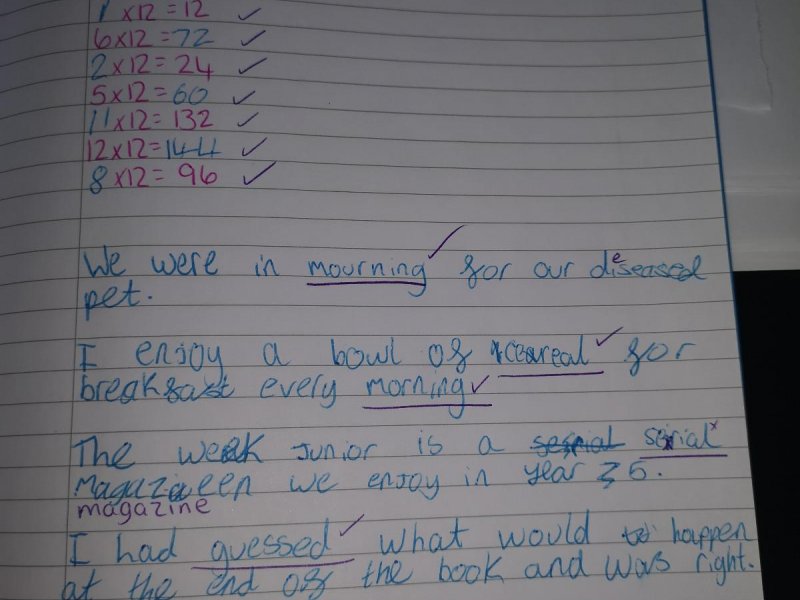 1 x12 = 12 ✓
6x12 = 72 ✓
2 x12 = 24 ✓
5x12 = 60 ✓
11 x12 = 132 ✓
12x12 = 144 ✓
8 x12 = 96 ✓
We were in mourning ✓ for our deseased
pet.
I enjoy a bowl of cereal ✓ for
breakfast every morning ✓
The week Junior is a serial
Magazeen we enjoy in year 5.
magazine
I had guessed ✓ what would happen
at the end of the book and was right.